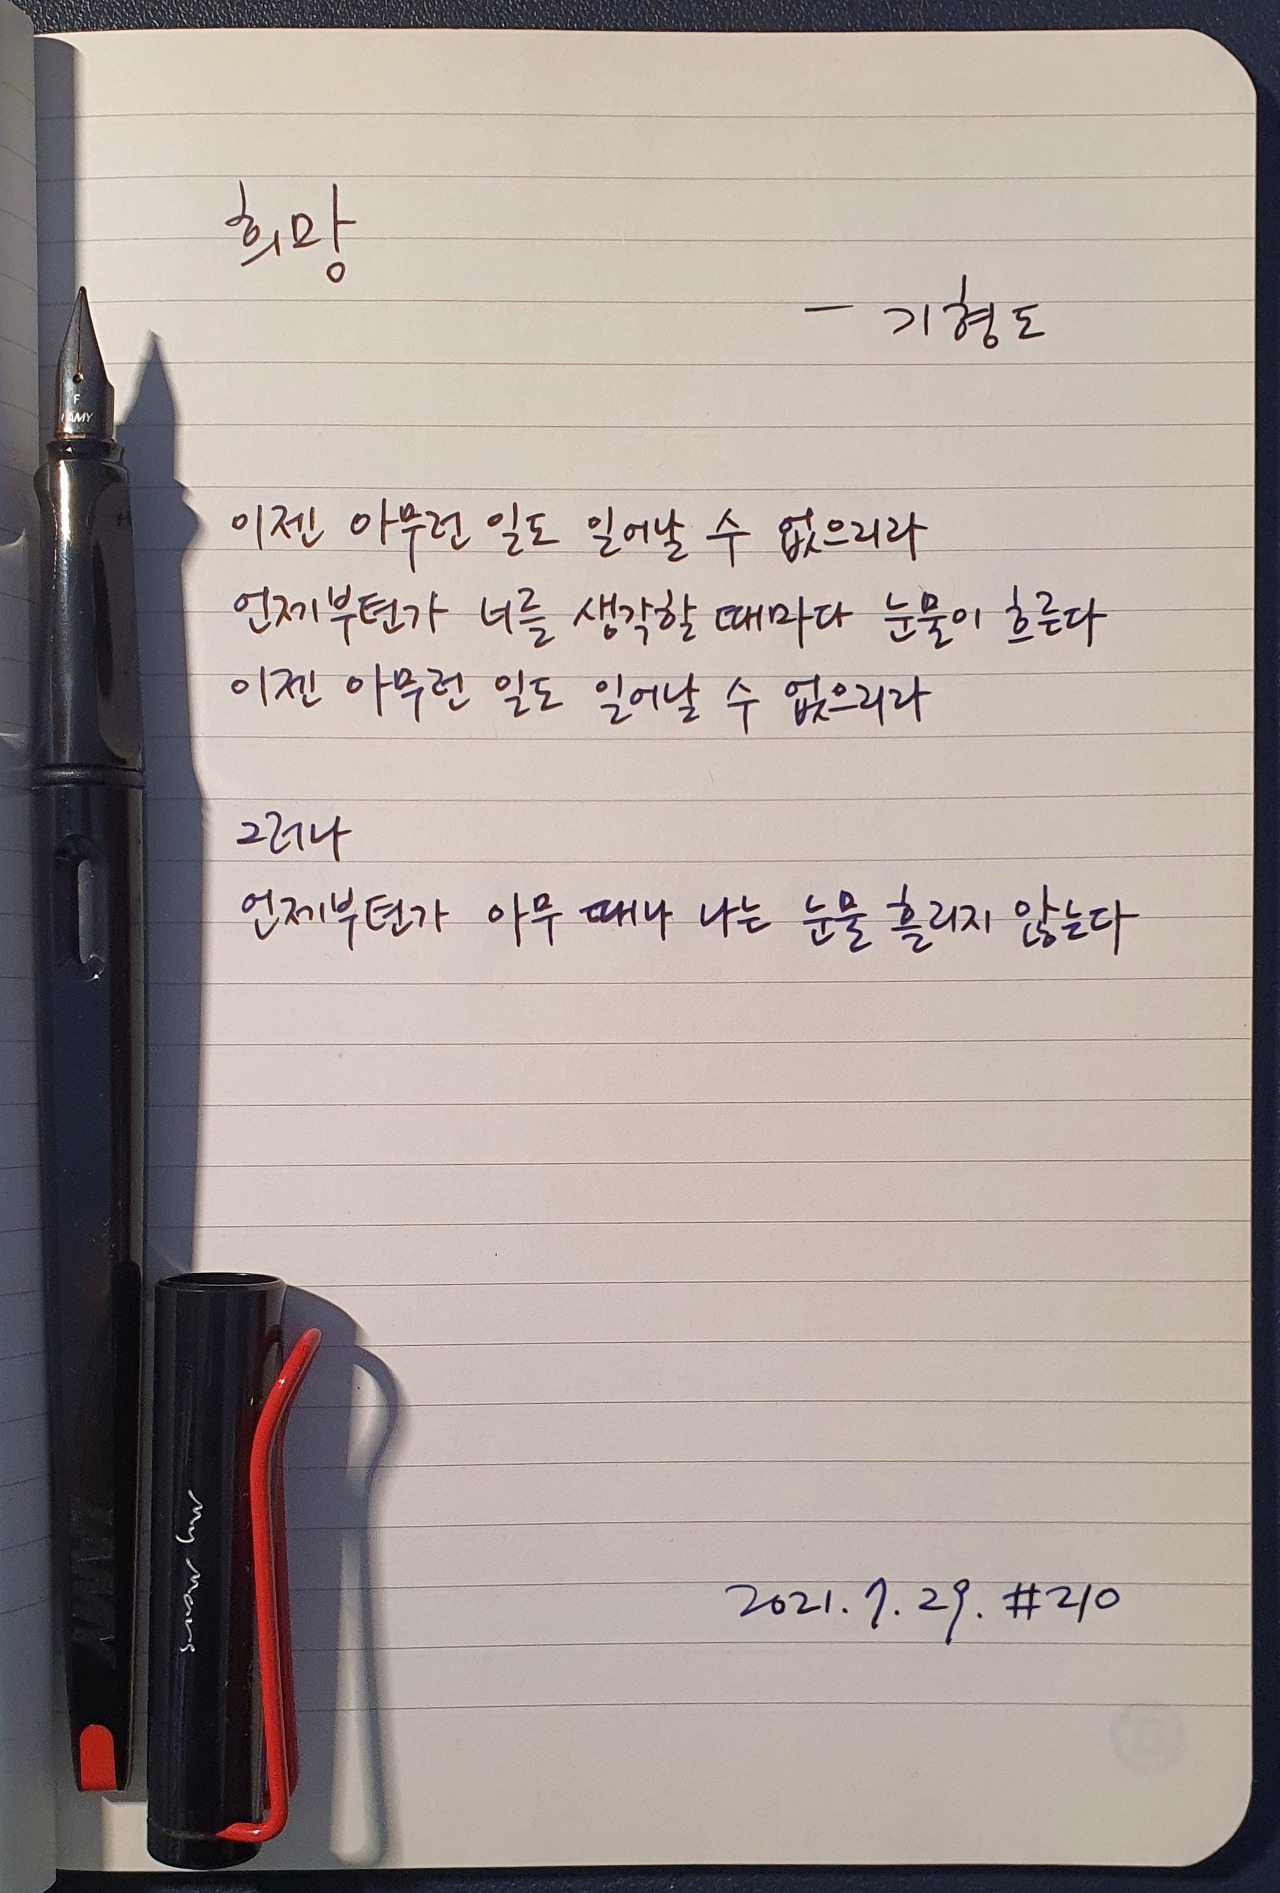 희망
- 기형도
이젠 아무런 일도 일어날 수 없으리라
언제부턴가 너를 생각할 때마다 눈물이 흐른다
이젠 아무런 일도 일어날 수 없으리라
그러나
언제부턴가 아무 때나 나는 눈물 흘리지 않는다
2021. 7. 29. #210
F
LAMY
LAMY